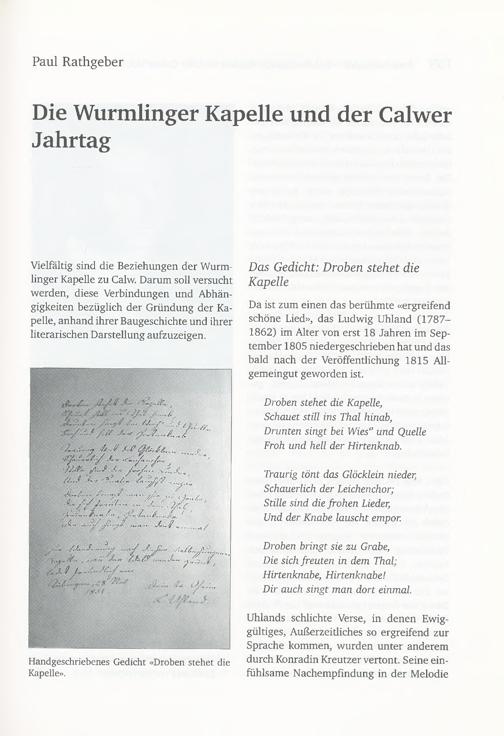 Paul Rathgeber
Die Wurmlinger Kapelle und der Calwer
Jahrtag
Vielfältig sind die Beziehungen der Wurm-
linger Kapelle zu Calw. Darum soll versucht
werden, diese Verbindungen und Abhän-
gigkeiten bezüglich der Gründung der Ka-
pelle, anhand ihrer Baugeschichte und ihrer
literarischen Darstellung aufzuzeigen.
Handgeschriebenes Gedicht «Droben stehet die
Kapelle».
Das Gedicht: Droben stehet die
Kapelle
Da ist zum einen das berühmte «ergreifend
schöne Lied», das Ludwig Uhland (1787–
1862) im Alter von erst 18 Jahren im Sep-
tember 1805 niedergeschrieben hat und das
bald nach der Veröffentlichung 1815 All-
gemeingut geworden ist.
Droben stehet die Kapelle,
Schauet still ins Thal hinab,
Drunten singt bei Wies" und Quelle
Froh und hell der Hirtenknab.
Traurig tönt das Glöcklein nieder,
Schauerlich der Leichenchor;
Stille sind die frohen Lieder,
Und der Knabe lauscht empor.
Droben bringt sie zu Grabe,
Die sich freuten in dem Thal;
Hirtenknabe, Hirtenknabe!
Dir auch singt man dort einmal.
Uhlands schlichte Verse, in denen Ewig-
gültiges, Außerzeitliches so ergreifend zur
Sprache kommen, wurden unter anderem
durch Konradin Kreutzer vertont. Seine ein-
fühlsame Nachempfindung in der Melodie